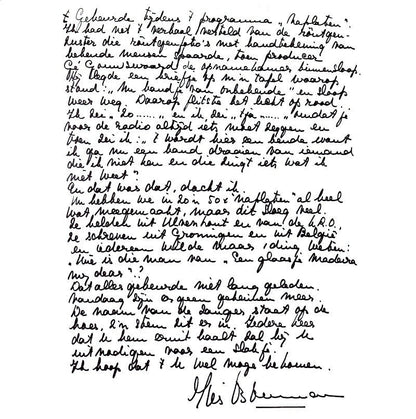 't Gebeurde tijdens 't programma "Naplaten".
Ik had net 't verhaal verteld van de röntgen-
zuster die röntgenfoto's met handtekening van
bekende mensen spaarde, toen producer
Cé Crouwel de opnamekamer binnensloop.
Hij legde een briefje op m'n tafel waarop
stand: "Nu bandje van onbekende" en sloop
weer weg. Daarop flitste het licht op rood
Ik zei "Zo......." en ik zei "tja......." omdat je
voor de radio altijd iets moet zeggen en
toen zei ik: "'t Wordt hier een beetje want
ik ga nu een band draaien van iemand
die ik niet ken en die zingt iets wat ik
niet weet".
En dat was dat, dacht ik.
We hebben we in zo'n 50x "naplaten" al heel
wat meegemaakt, maar dit sloeg veel.
Ze belden uit en van de K.R.O.
Ze schreven uit Groningen en uit België
en iedereen wilde maar 1 ding weten:
"Wie is die man van "Een glaasje madeira
my dear"?"
Dat alles gebeurde niet lang geleden.
Vandaag zijn er geen geheimen meer.
De naam van de zanger staat op de
hoes, z'n stem zit er in. Iedere keer
dat u hem eruit haalt zal hij u
uitnodigen voor een slokje.
Ik hoop dat 't u wel moge bekomen.